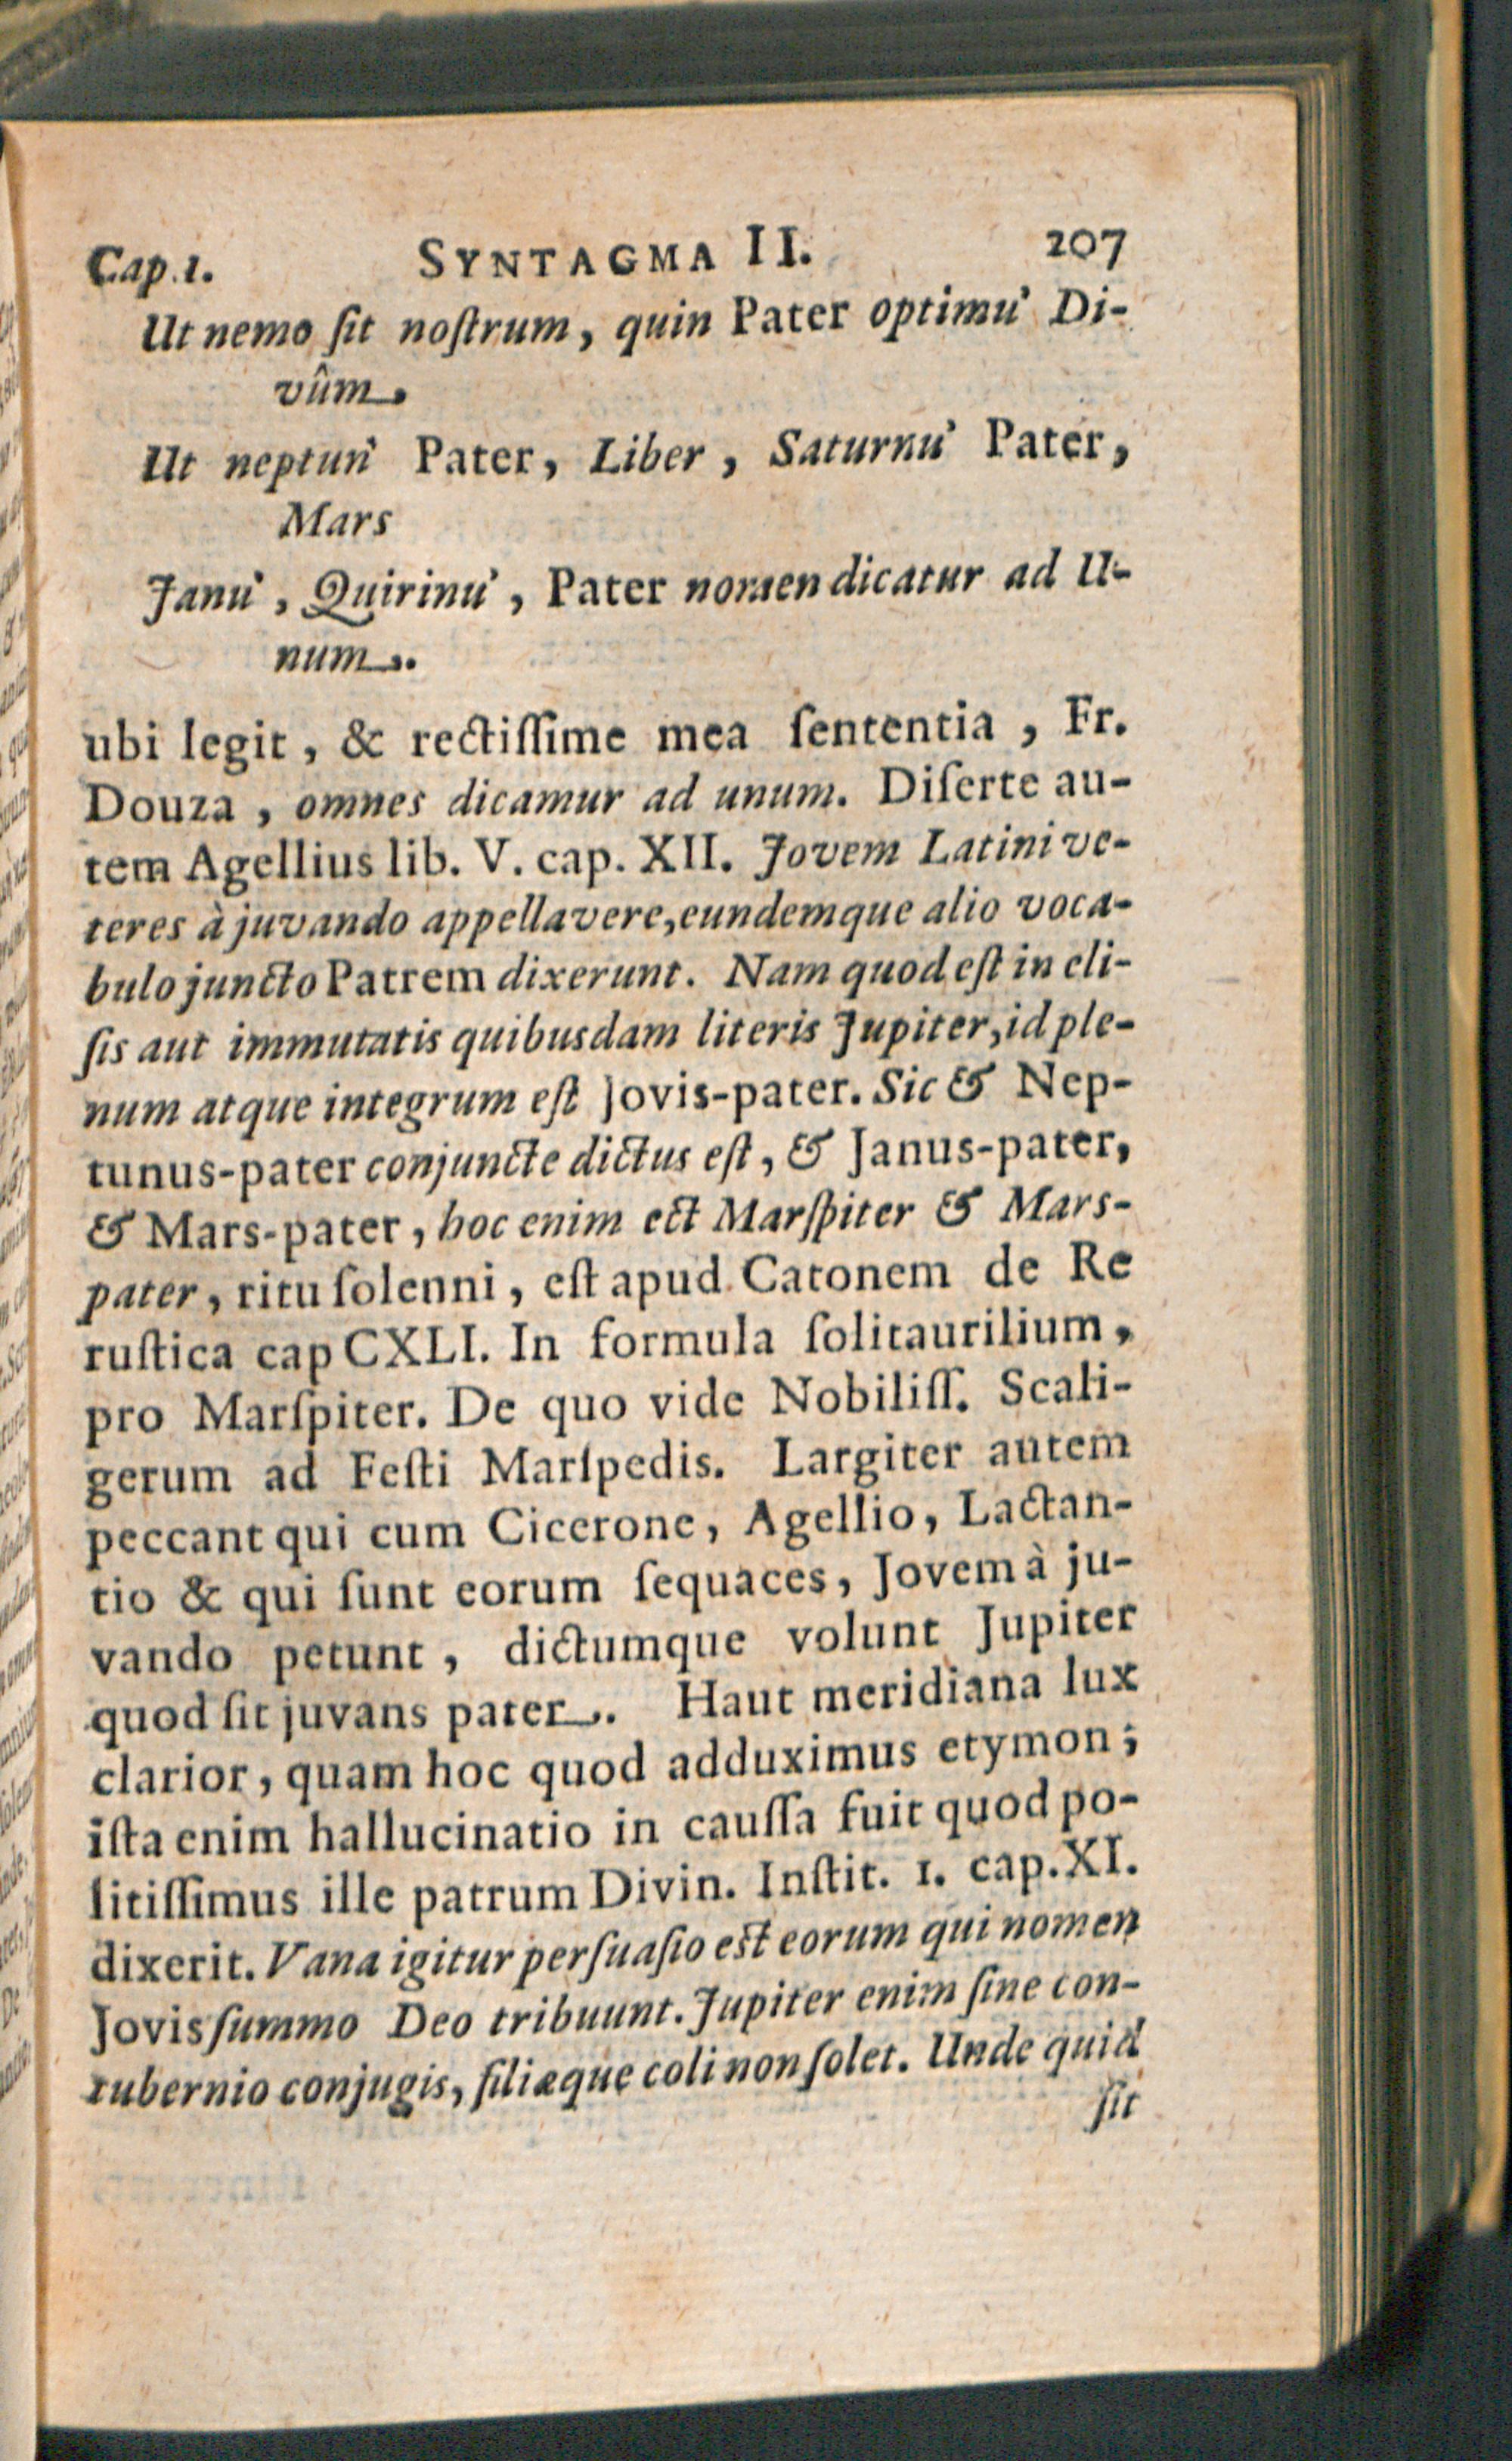 Cap. 1. SYNTAGMA II. 207
Ut nemo ſit noſtrum, quin Pater optimu' Di-
vûm.
Ut neptun' Pater, Liber, Saturnu' Pater,
Mars
Janu', Quirinu', Pater nomen dicatur ad U-
num.
ubi legit, & rectiſſime mea ſententia, Fr.
Douza, omnes dicamur ad unum. Diſerte au-
tem Agellius lib. V. cap. XII. Jovem Latini ve-
teres à juvando appellavere, eundemque alio voca-
bulo juncto Patrem dixerunt. Nam quod eſt in eli-
ſis aut immutatis quibusdam literis Jupiter, id ple-
num atque integrum eſt Jovis-pater. Sic & Nep-
tunus-pater conjuncte dictus eſt, & Janus-pater,
& Mars-pater, hoc enim ect Marſpiter & Mars-
pater, ritu ſolenni, eſt apud Catonem de Re
ruſtica cap CXLI. In formula ſolitaurilium,
pro Marſpiter. De quo vide Nobiliſſ. Scali-
gerum ad Feſti Marſpedis. Largiter autem
peccant qui cum Cicerone, Agellio, Lactan-
tio & qui ſunt eorum ſequaces, Jovem à ju-
vando petunt, dictumque volunt Jupiter
quod ſit juvans pater. Haut meridiana lux
clarior, quam hoc quod adduximus etymon;
iſta enim hallucinatio in cauſſa fuit quod po-
litiſſimus ille patrum Divin. Inſtit. 1. cap. XI.
dixerit. Vana igitur perſuaſio est eorum qui nomen
Jovis ſummo Deo tribuunt. Jupiter enim ſine con-
tubernio conjugis, filiæque coli non ſolet. Unde quid
ſit